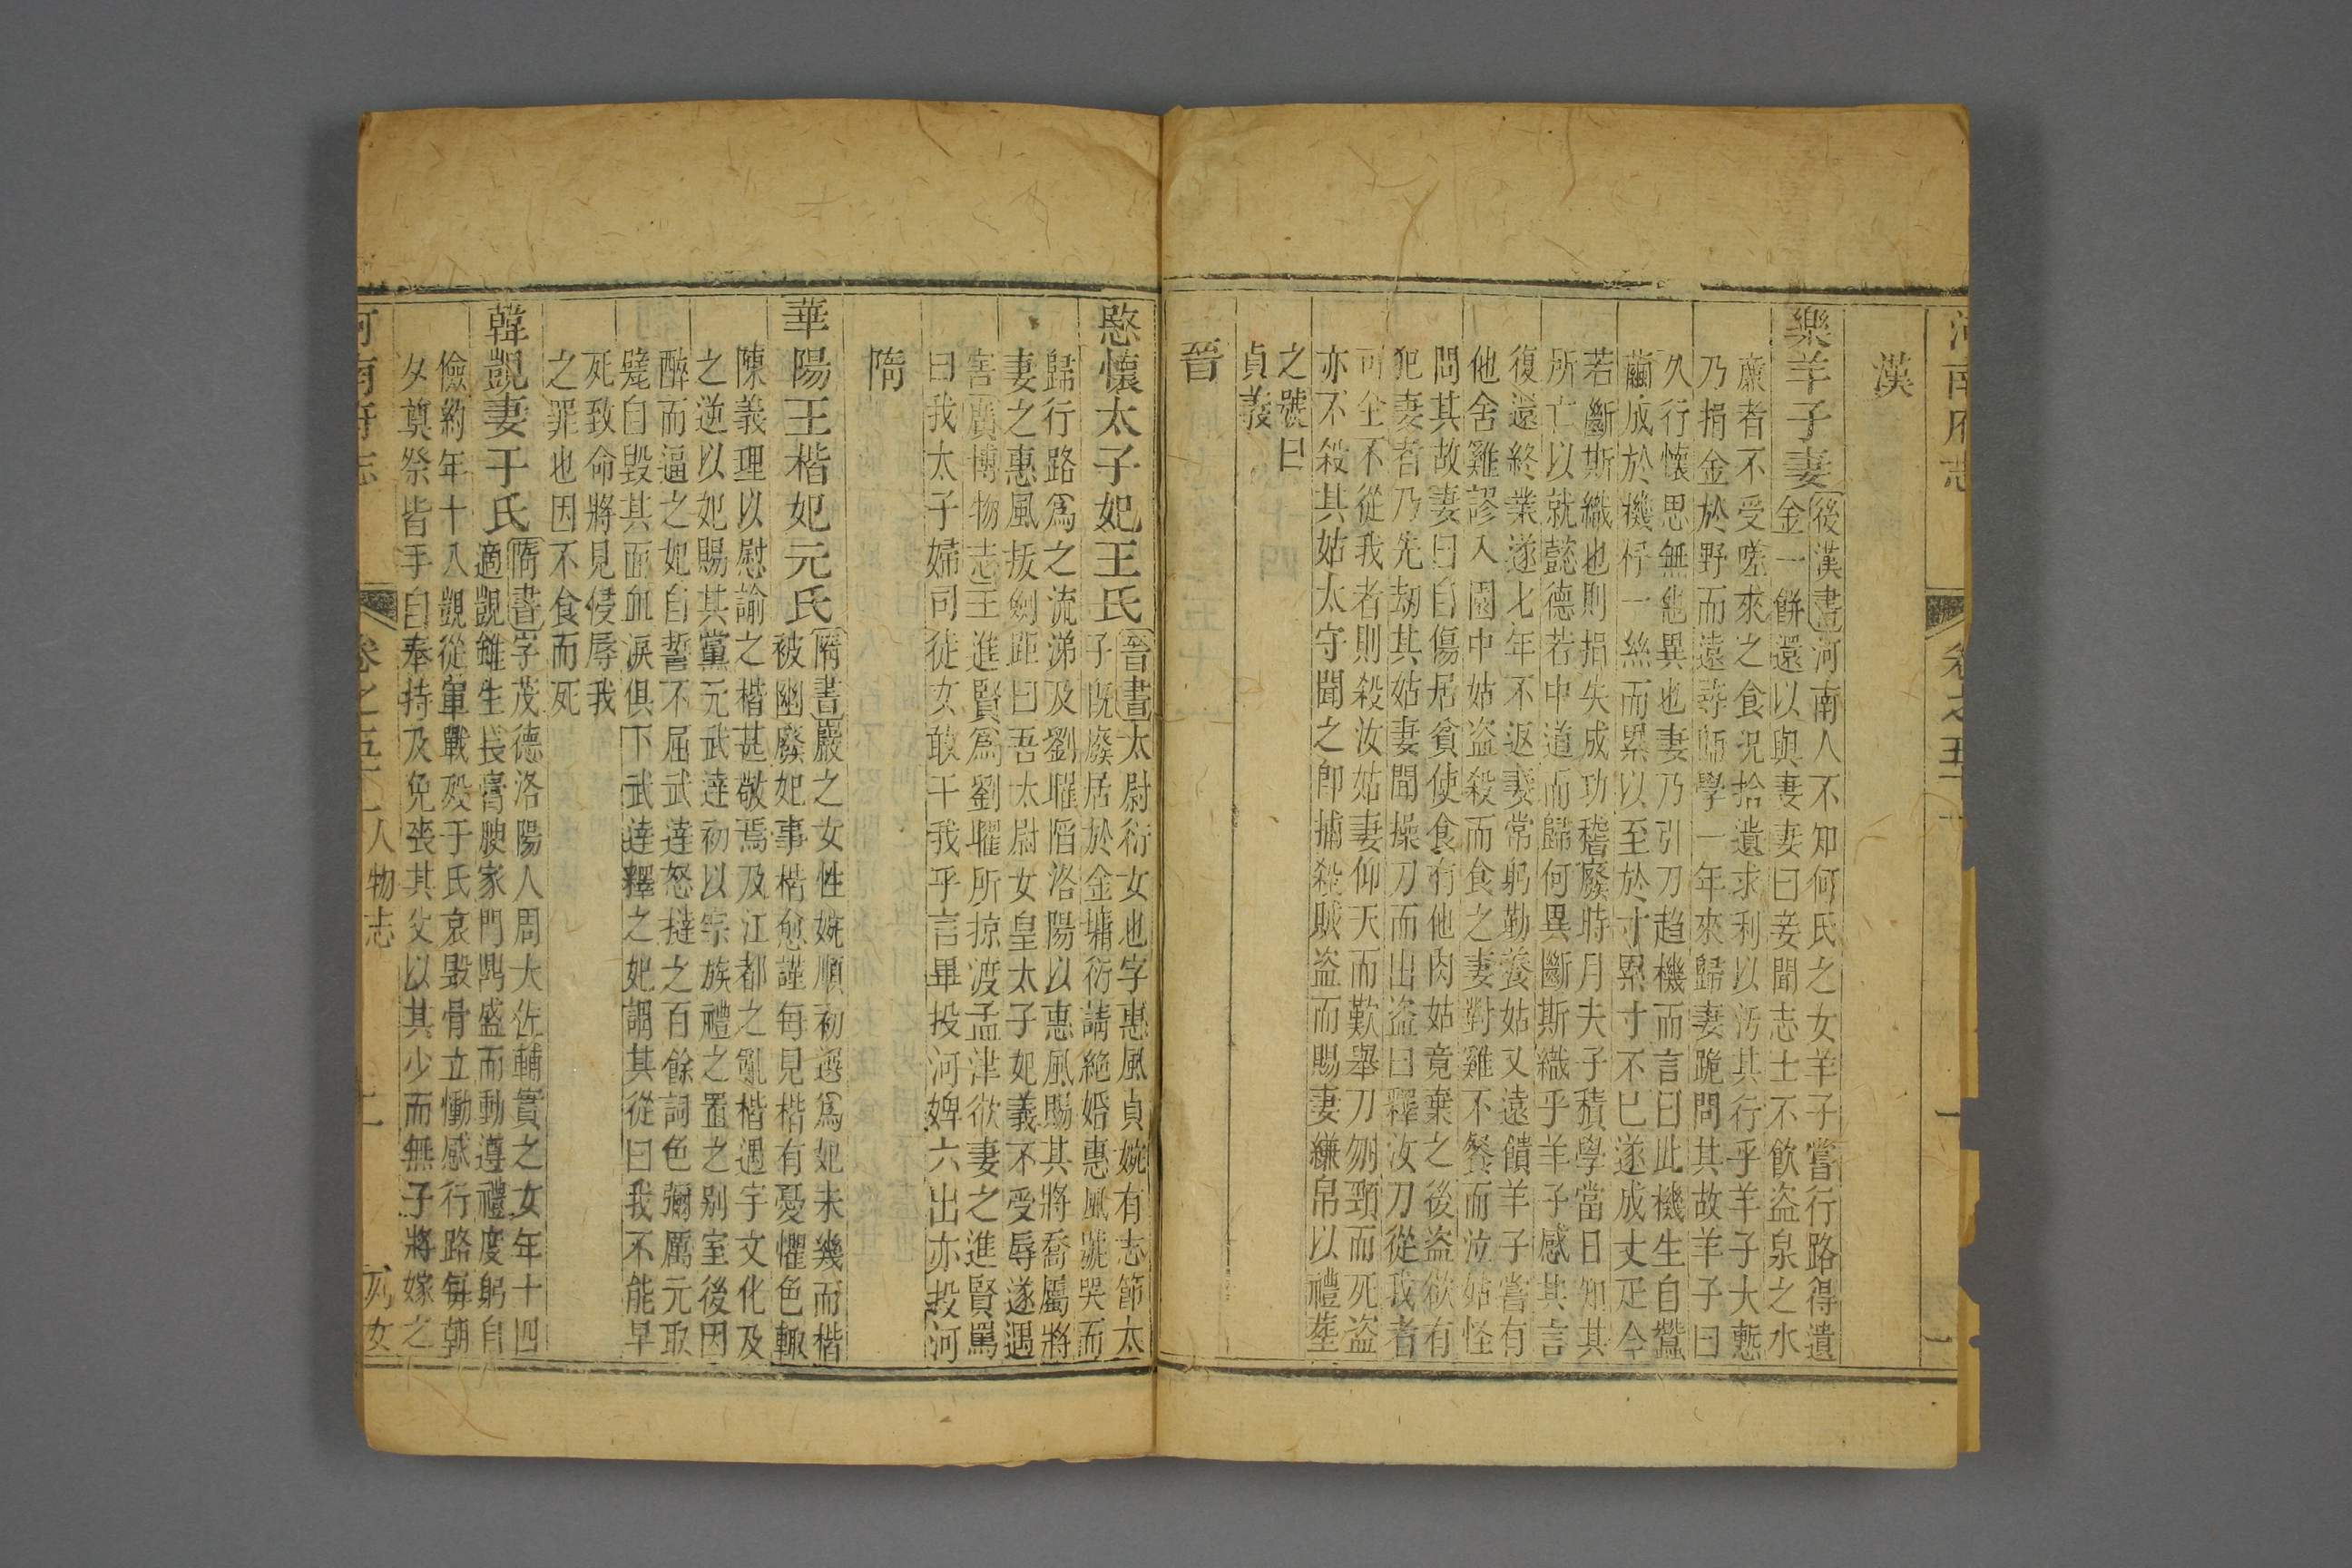 河南府志
卷之五十
漢
樂羊子妻
後漢書河南人不知何氏之女羊子嘗行路得遺
金一餅還以與妻妻曰妾聞志士不飲盜泉之水
廉者不受嗟來之食況拾遺求利以汚其行乎羊子大慙
乃捐金於野而遠尋師學一年來歸妻跪問其故羊子曰
久行懷思無他異也妻乃引刀趨機而言曰此機生自蠶
繭成於機杼一絲而累以至於寸累寸不已遂成丈疋今
若斷斯織也則捐失成功稽廢時月夫子積學當日知其
所亡以就懿德若中道而歸何異斷斯織乎羊子感其言
復還終業遂七年不返妻常躬勤養姑又遠饋羊子嘗有
他舍雞謬入園中姑盜殺而食之妻對雞不餐而泣姑怪
問其故妻曰自傷居貧使食有他肉姑竟棄之後盜欲有
犯妻者乃先刼其姑妻聞操刀而出盜曰釋汝刀從我者
可全不從我者則殺汝姑妻仰天而歎舉刀刎頸而死盜
亦不殺其姑太守聞之卽捕殺賊盜而賜妻縑帛以禮塟
之號曰
貞義
晉
愍懷太子妃王氏
晉書太尉衍女也字惠風貞婉有志節太
子旣廢居於金墉衍請絶婚惠風號哭而
歸行路爲之流涕及劉曜陷洛陽以惠風賜其將喬屬將
妻之惠風拔劍距曰吾太尉女皇太子妃義不受辱遂遇
害廣博物志王進賢爲劉曜所掠渡孟津欲妻之進賢罵
曰我太子婦司徒女敢干我乎言畢投河婢六出亦投河
隋
華陽王楷妃元氏
隋書巖之女性婉順初選爲妃未幾而楷
被幽廢妃事楷愈謹每見楷有憂懼色輙
陳義理以慰諭之楷甚敬焉及江都之亂楷遇宇文化及
之逆以妃賜其黨元武達初以宗族禮之置之别室後因
醉而逼之妃自誓不屈武達怒撻之百餘詞色彌厲元取
甓自毀其面血淚俱下武達釋之妃謂其從曰我不能早
死致命將見侵辱我
之罪也因不食而死
韓覬妻于氏
隋書字茂德洛陽人周大佐輔實之女年十四
適覬雖生長膏腴家門鼎盛而動遵禮度躬自
儉約年十八覬從軍戰殁于氏哀毀骨立慟感行路每朝
夕奠祭皆手自奉持及免喪其父以其少而無子將嫁之
河南府志
卷之五十
人物志
列女